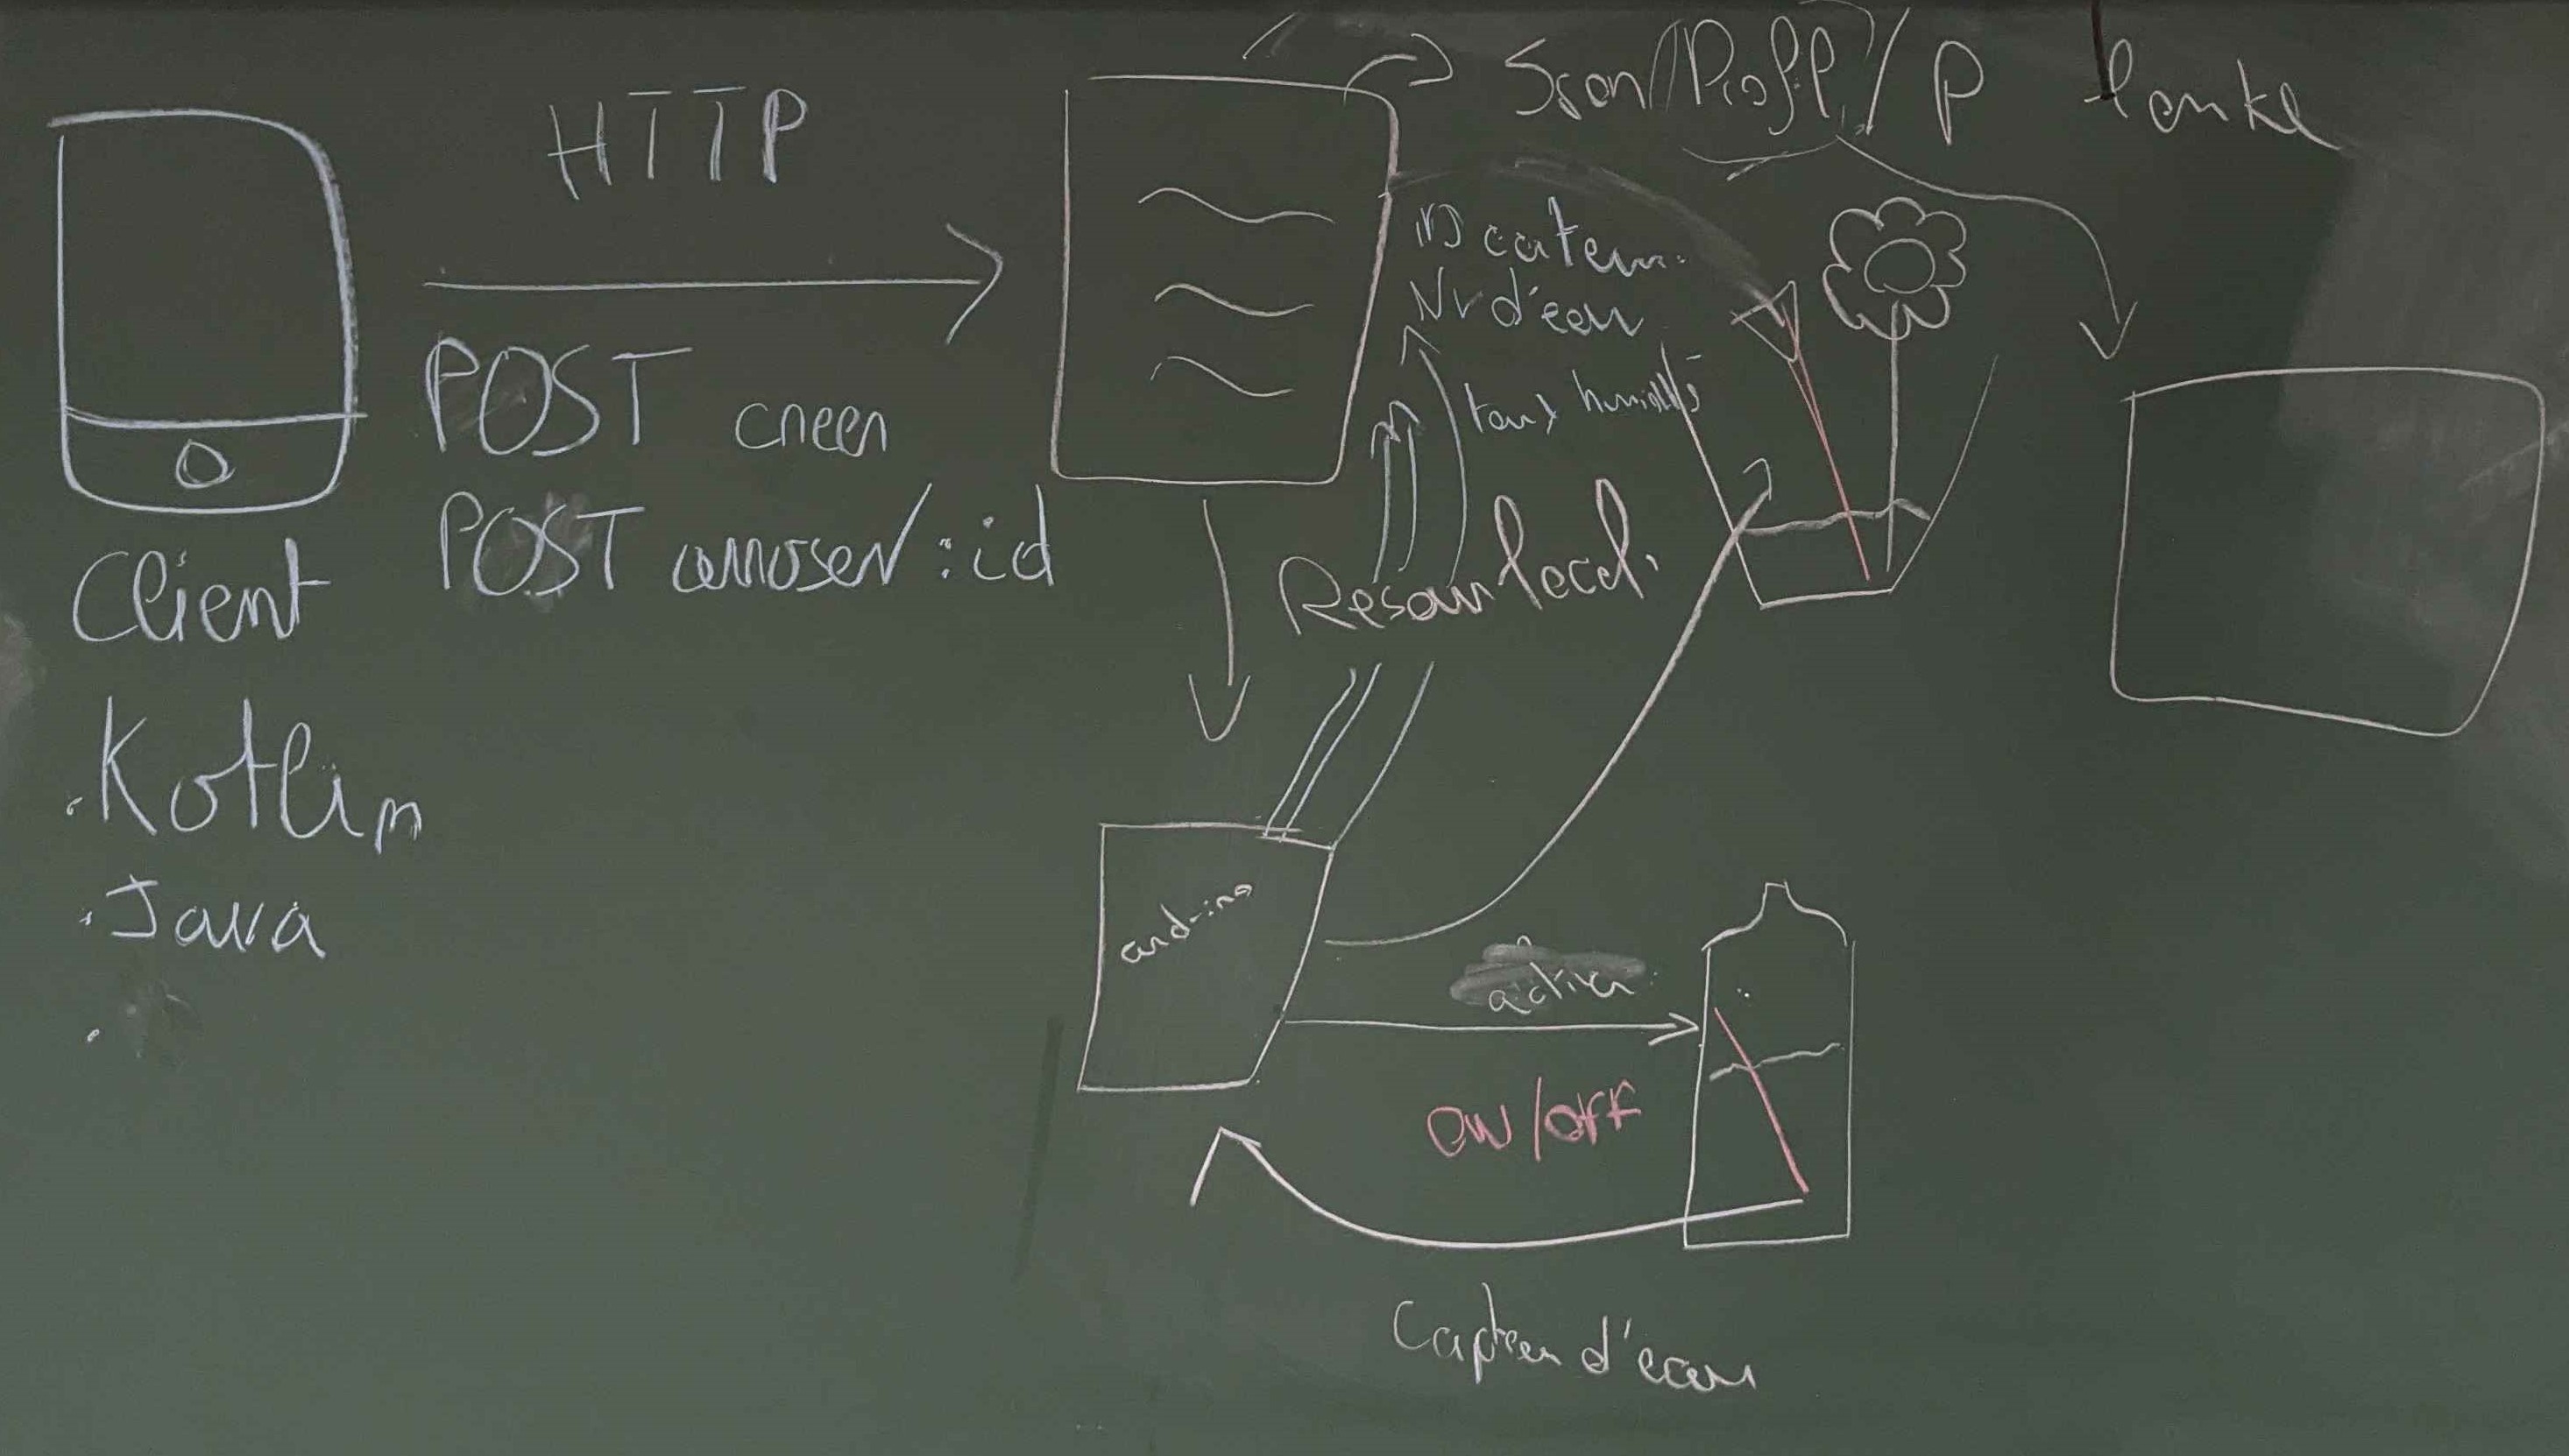 HTTP
POST creer
POST arroser/:id
Client
.Kotlin
.Java
.
Json/Profil/P
Nv d'eau
taux humidité
Reseau local.
arduino
activer
ON/OFF
Capteur d'eau